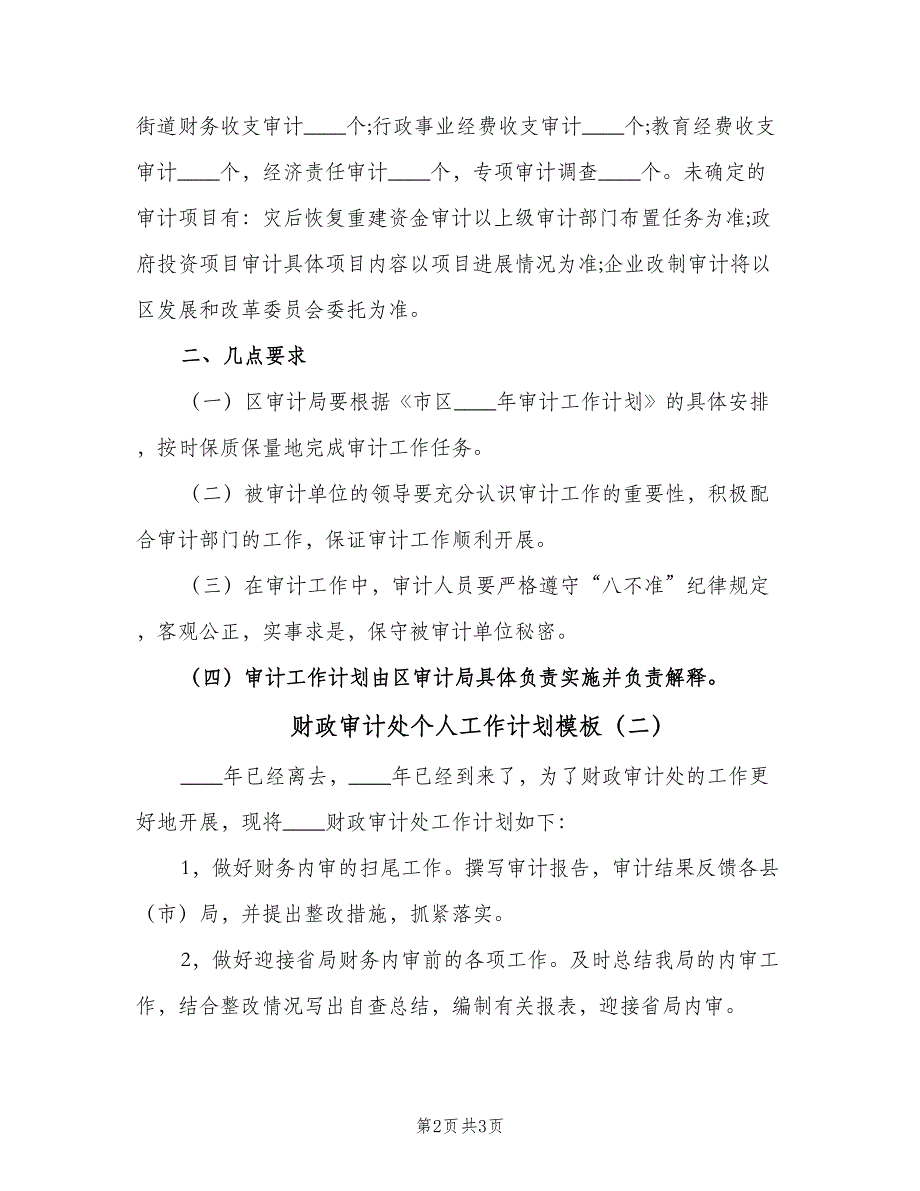 街道财务收支审计____个;行政事业经费收支审计____个;教育经费收支
审计____个，经济责任审计____个，专项审计调查____个。未确定的
审计项目有：灾后恢复重建资金审计以上级审计部门布置任务为准;政
府投资项目审计具体项目内容以项目进展情况为准;企业改制审计将以
区发展和改革委员会委托为准。
二、几点要求
（一）区审计局要根据《市区____年审计工作计划》的具体安排
，按时保质保量地完成审计工作任务。
（二）被审计单位的领导要充分认识审计工作的重要性，积极配
合审计部门的工作，保证审计工作顺利开展。
（三）在审计工作中，审计人员要严格遵守“八不准”纪律规定
，客观公正，实事求是，保守被审计单位秘密。
（四）审计工作计划由区审计局具体负责实施并负责解释。
财政审计处个人工作计划模板（二）
____年已经离去，____年已经到来了，为了财政审计处的工作更
好地开展，现将____财政审计处工作计划如下：
1，做好财务内审的扫尾工作。撰写审计报告，审计结果反馈各县
（市）局，并提出整改措施，抓紧落实。
2，做好迎接省局财务内审前的各项工作。及时总结我局的内审工
作，结合整改情况写出自查总结，编制有关报表，迎接省局内审。
第2页 共3页